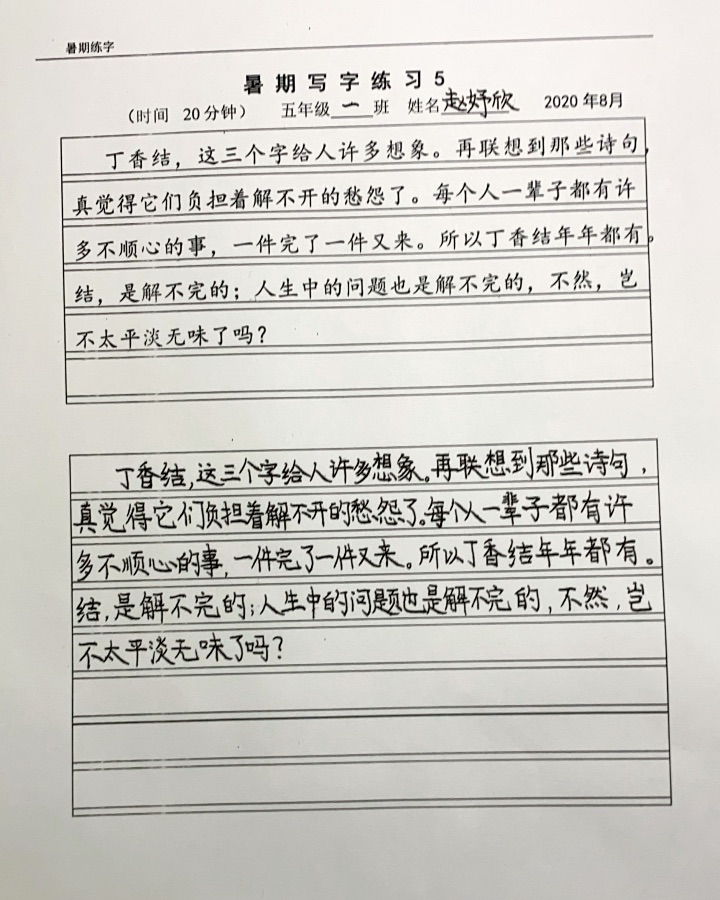 暑期练字
暑期写字练习5
（时间 20分钟） 五年级一班 姓名赵妤欣 2020年8月
丁香结，这三个字给人许多想象。再联想到那些诗句，
真觉得它们负担着解不开的愁怨了。每个人一辈子都有许
多不顺心的事，一件完了一件又来。所以丁香结年年都有。
结，是解不完的；人生中的问题也是解不完的，不然，岂
不太平淡无味了吗？
丁香结，这三个字给人许多想象。再联想到那些诗句，
真觉得它们负担着解不开的愁怨了。每个人一辈子都有许
多不顺心的事，一件完了一件又来。所以丁香结年年都有。
结，是解不完的；人生中的问题也是解不完的，不然，岂
不太平淡无味了吗？